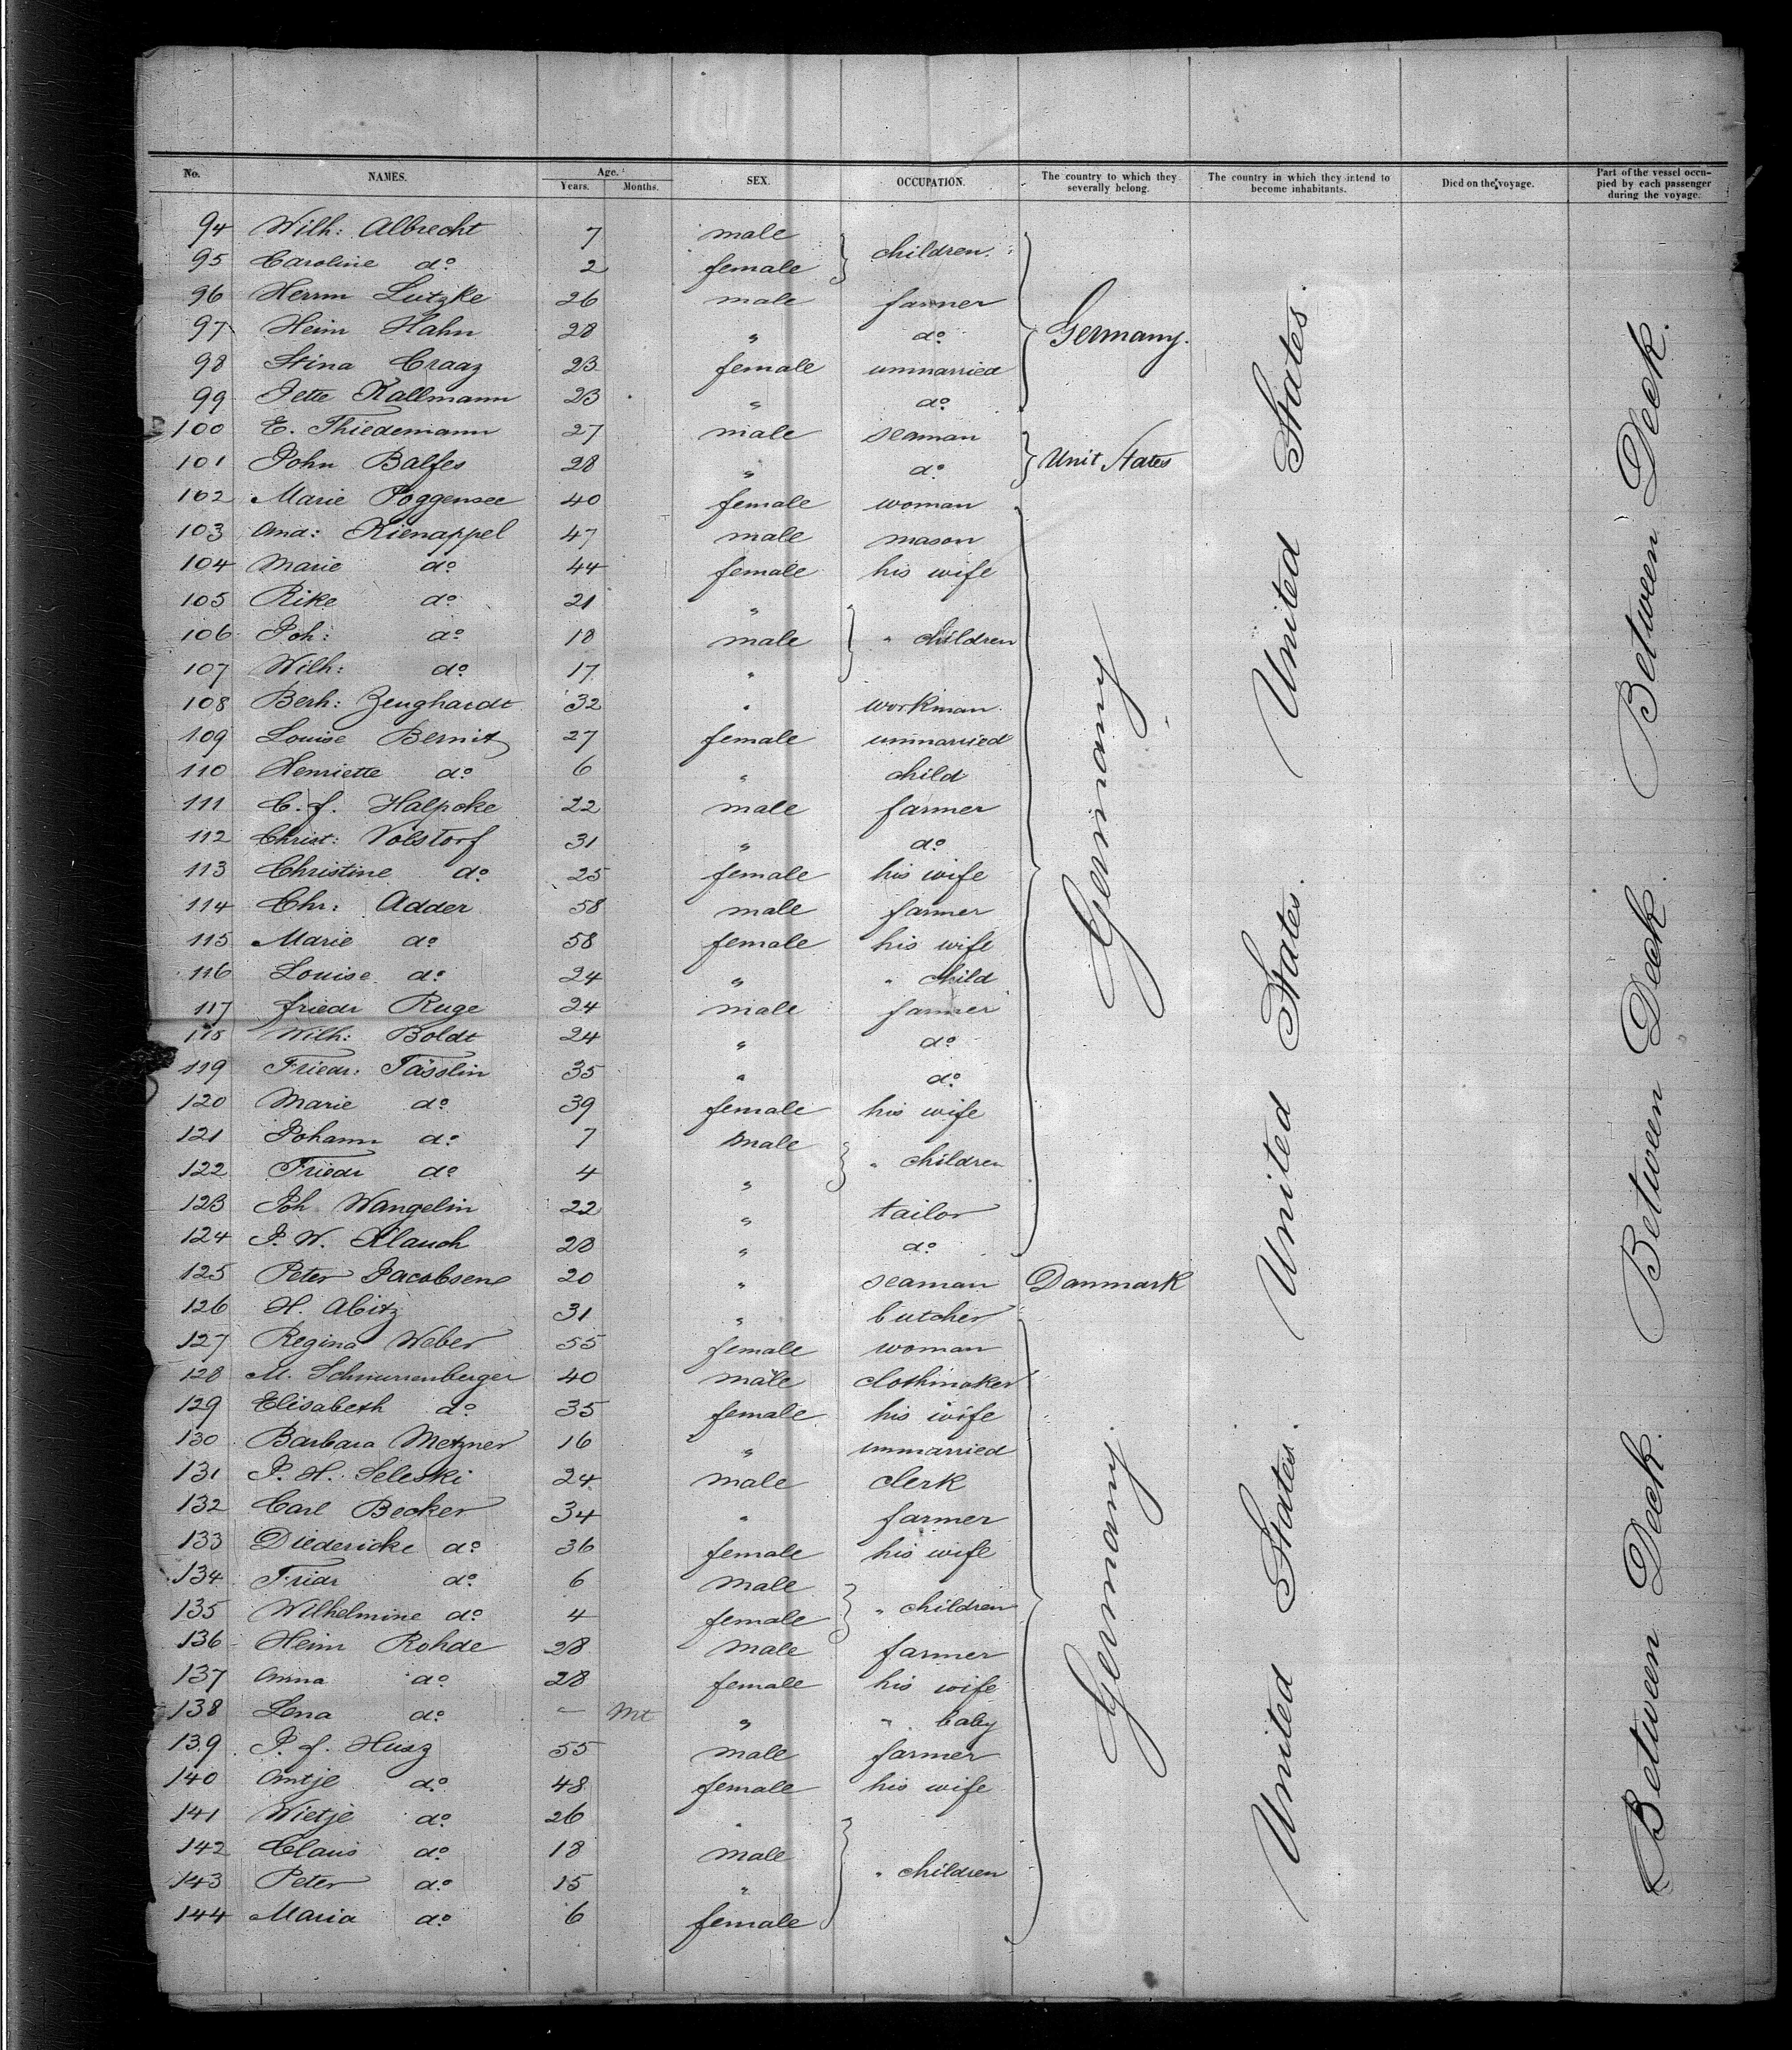 No. NAMES. Age. Years. Months. SEX. OCCUPATION. The country to which they severally belong. The country in which they intend to become inhabitants. Died on the voyage. Part of the vessel occupied by each passenger during the voyage.
94 Wilh: Albrecht 7 male } children.
95 Caroline do 2 female
96 Herrm Lutzke 26 male farmer
97 Heinr Hahn 28 " do } Germany.
98 Stina Craaz 23 female unmarried
99 Jette Kallmann 23 " do
100 E. Thiedemann 27 male seaman
101 John Balfes 28 " do } Unit States
102 Marie Poggensee 40 female woman
103 And: Kienappel 47 male mason
104 Marie do 44 female his wife
105 Rike do 21 "
106 Joh: do 18 male } " children
107 Wilh: do 17 "
108 Berh: Zeughardt 32 " workman.
109 Louise Bernitz 27 female unmarried
110 Henriette do 6 " child
111 C. f. Halpoke 22 male farmer
112 Christ: Volstorf 31 " do
113 Christine do 25 female his wife
114 Chr: Adder 58 male farmer
115 Marie do 58 female his wife
116 Louise do 24 " " child
117 friedr Ruge 24 male farmer
118 Wilh: Boldt 24 " do
119 Friedr: Tässlin 35 " do
120 Marie do 39 female his wife
121 Johann do 7 male } " children
122 Friedr do 4 "
123 Joh Wangelin 22 " tailor
124 J. W. Klauch 28 " do
Germany
125 Peter Jacobsene 20 " seaman Danmark
126 H. Abitz 31 " butcher
127 Regina Weber 55 female woman
128 M. Schnurrenberger 40 male clothmaker
129 Elisabeth do 35 female his wife
130 Barbara Metzner 16 " unmarried
131 J. H. Seleski 24 male clerk
132 Carl Becker 34 " farmer
133 Diedericke do 36 female his wife
134 Friedr do 6 male } " children
135 Wilhelmine do 4 female
136 Heinr Rohde 28 male farmer
137 Anna do 28 female his wife
138 Lena do – Mt " " baby
139 J. f. Husz 55 male farmer
140 Antje do 48 female his wife
141 Wietje do 26 "
142 Claus do 18 male } " children
143 Peter do 15 "
144 Maria do 6 female
Germany.
United States.
United States.
United States.
Between Deck.
Between Deck.
Between Deck.